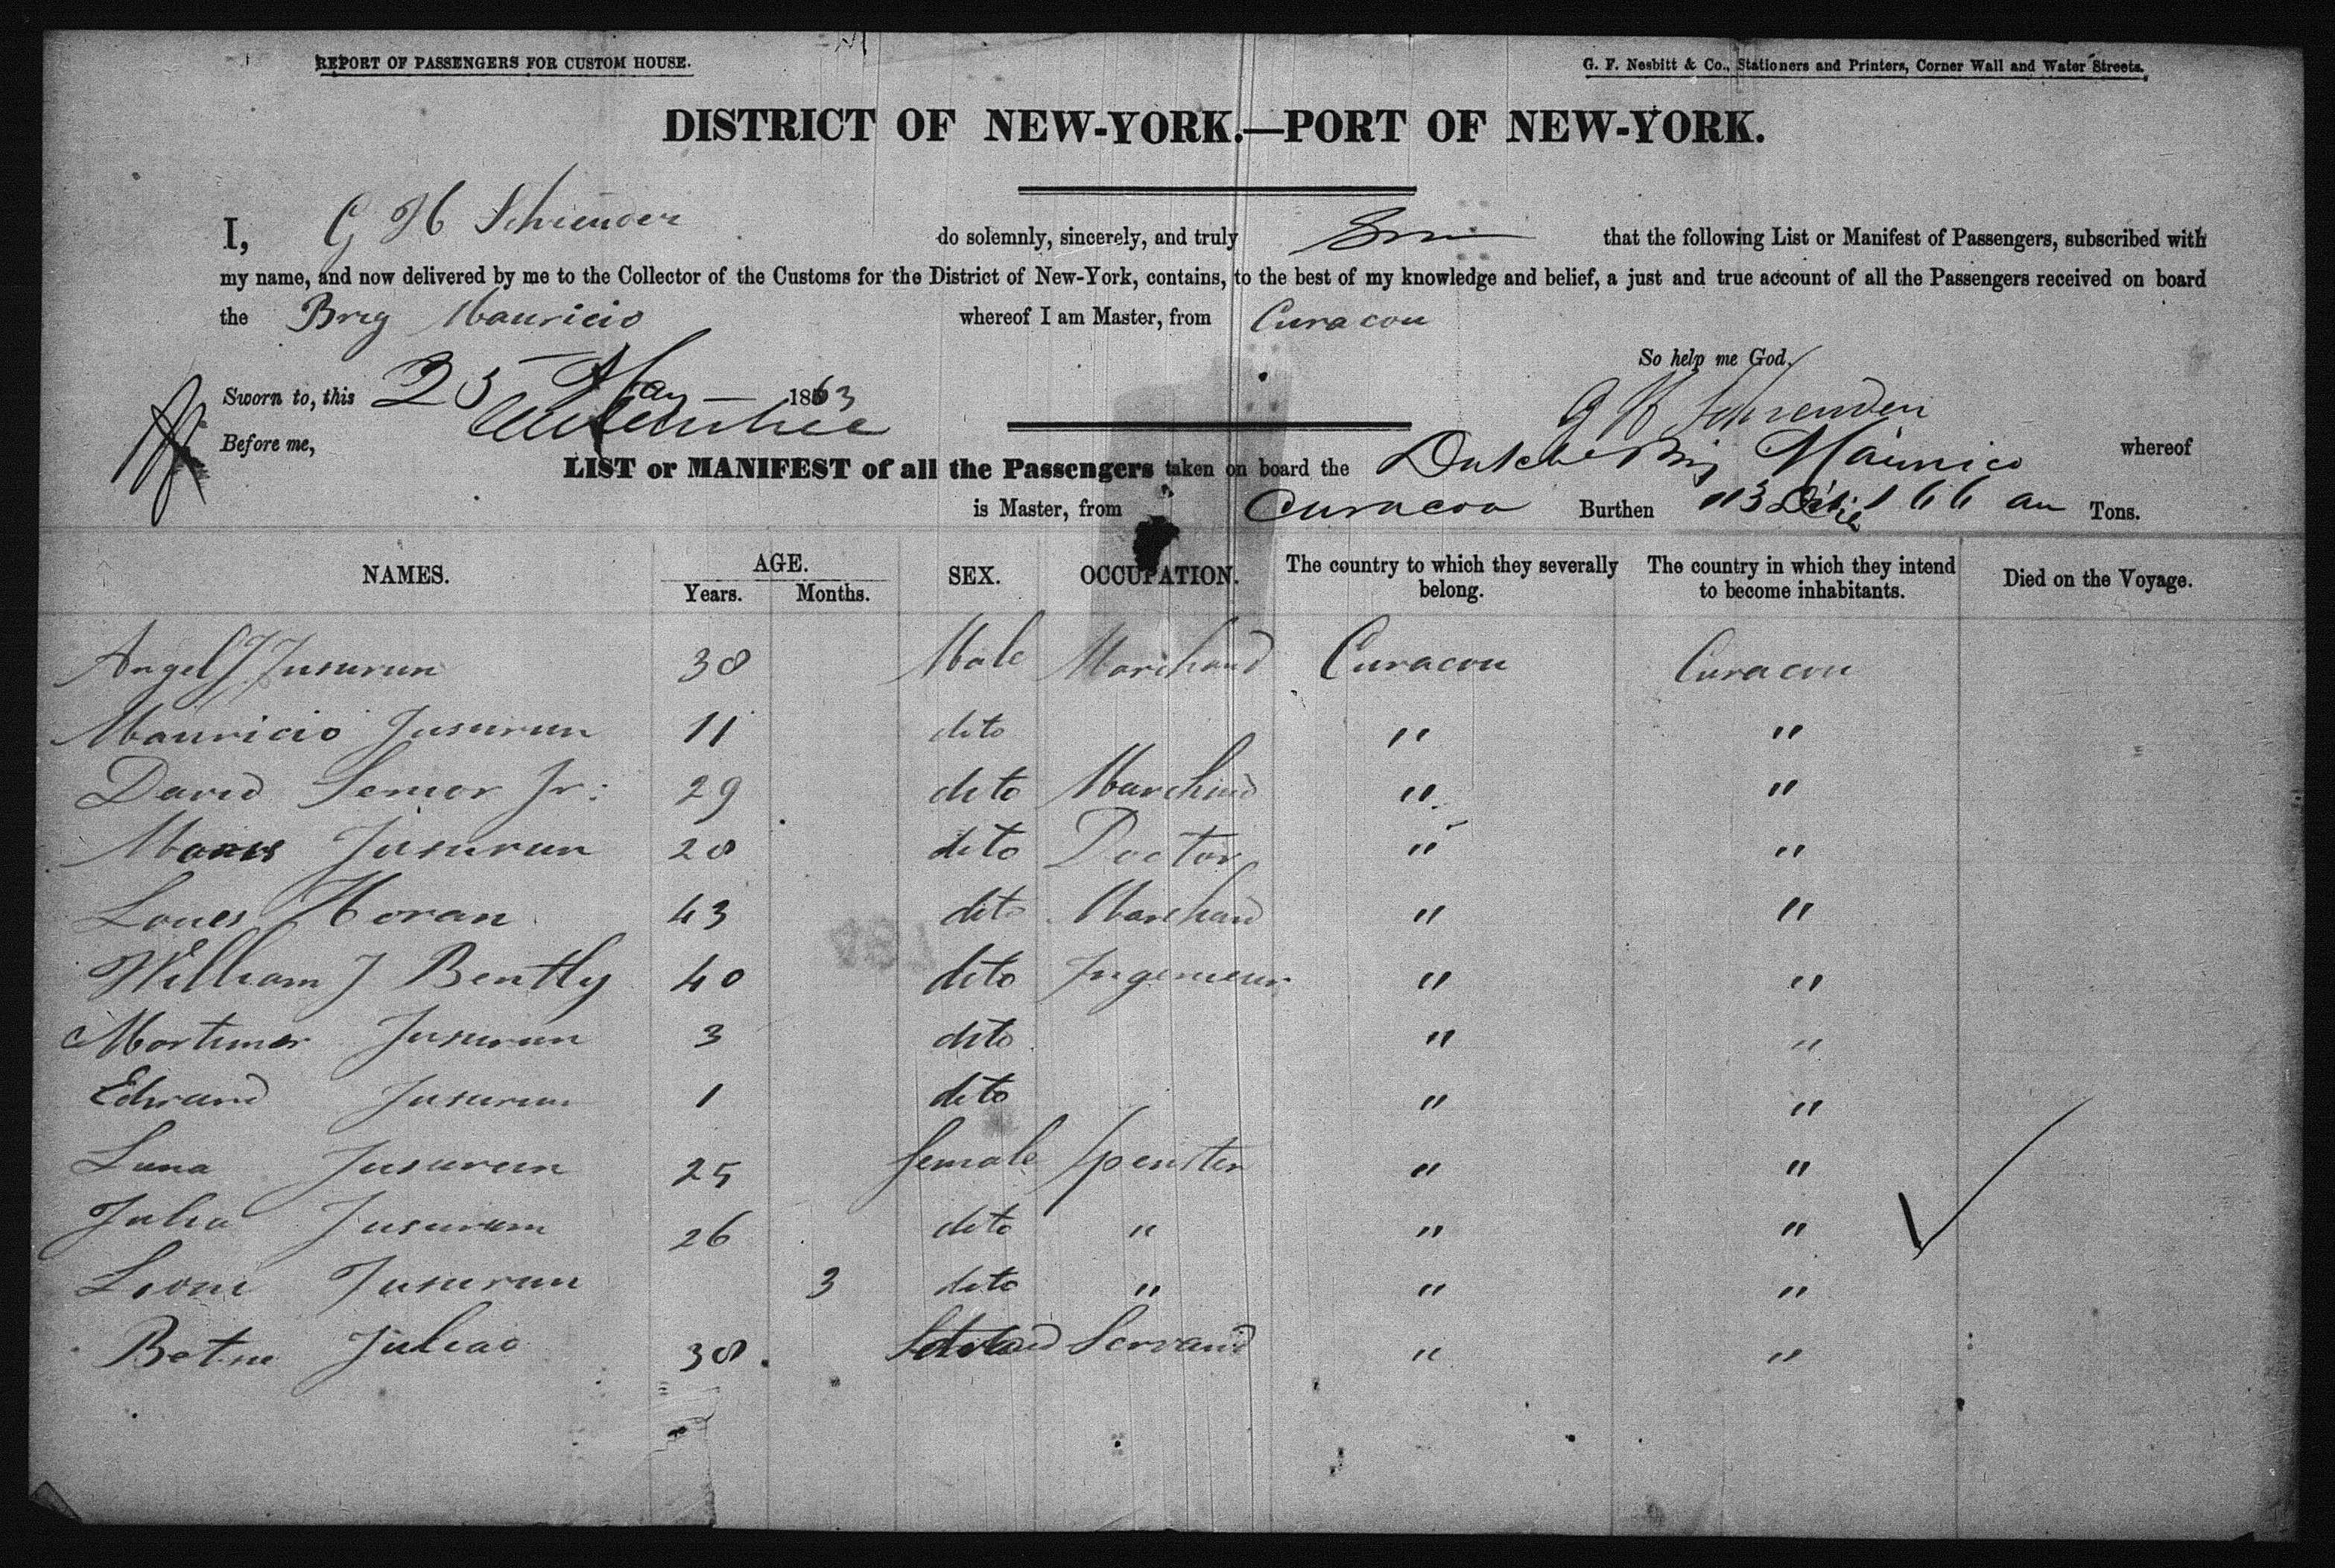 REPORT OF PASSENGERS FOR CUSTOM HOUSE. G. F. Nesbitt & Co., Stationers and Printers, Corner Wall and Water Streets.
DISTRICT OF NEW-YORK.—PORT OF NEW-YORK.
I, G H Schreuder do solemnly, sincerely, and truly that the following List or Manifest of Passengers, subscribed with
my name, and now delivered by me to the Collector of the Customs for the District of New-York, contains, to the best of my knowledge and belief, a just and true account of all the Passengers received on board
the Brig Mauricio whereof I am Master, from Curacou
So help me God.
Sworn to, this 25 May 1863 G H Schreuder
Before me,
LIST or MANIFEST of all the Passengers taken on board the Dutch Brig Mauricio whereof
is Master, from Curacoa Burthen 113 166 am Tons.
NAMES. AGE. SEX. OCCUPATION. The country to which they severally belong. The country in which they intend to become inhabitants. Died on the Voyage.
Years. Months.
Angel J. Jusurun 38 Male Marchand Curacou Curacou
Mauricio Jusurun 11 dito " "
David Senior Jr: 29 dito Marchand " "
Moses Jusurun 28 dito Doctor " "
Loues Horan 43 dito Marchand " "
William J Bently 40 dito Ingenieur " "
Mortimer Jusurun 3 dito " "
Edward Jusurun 1 dito " "
Luna Jusurun 25 female Spenster " "
Julia Jusurun 26 dito " " "
Leoni Jusurun 3 dito " " "
Juliao 38. Servand " "